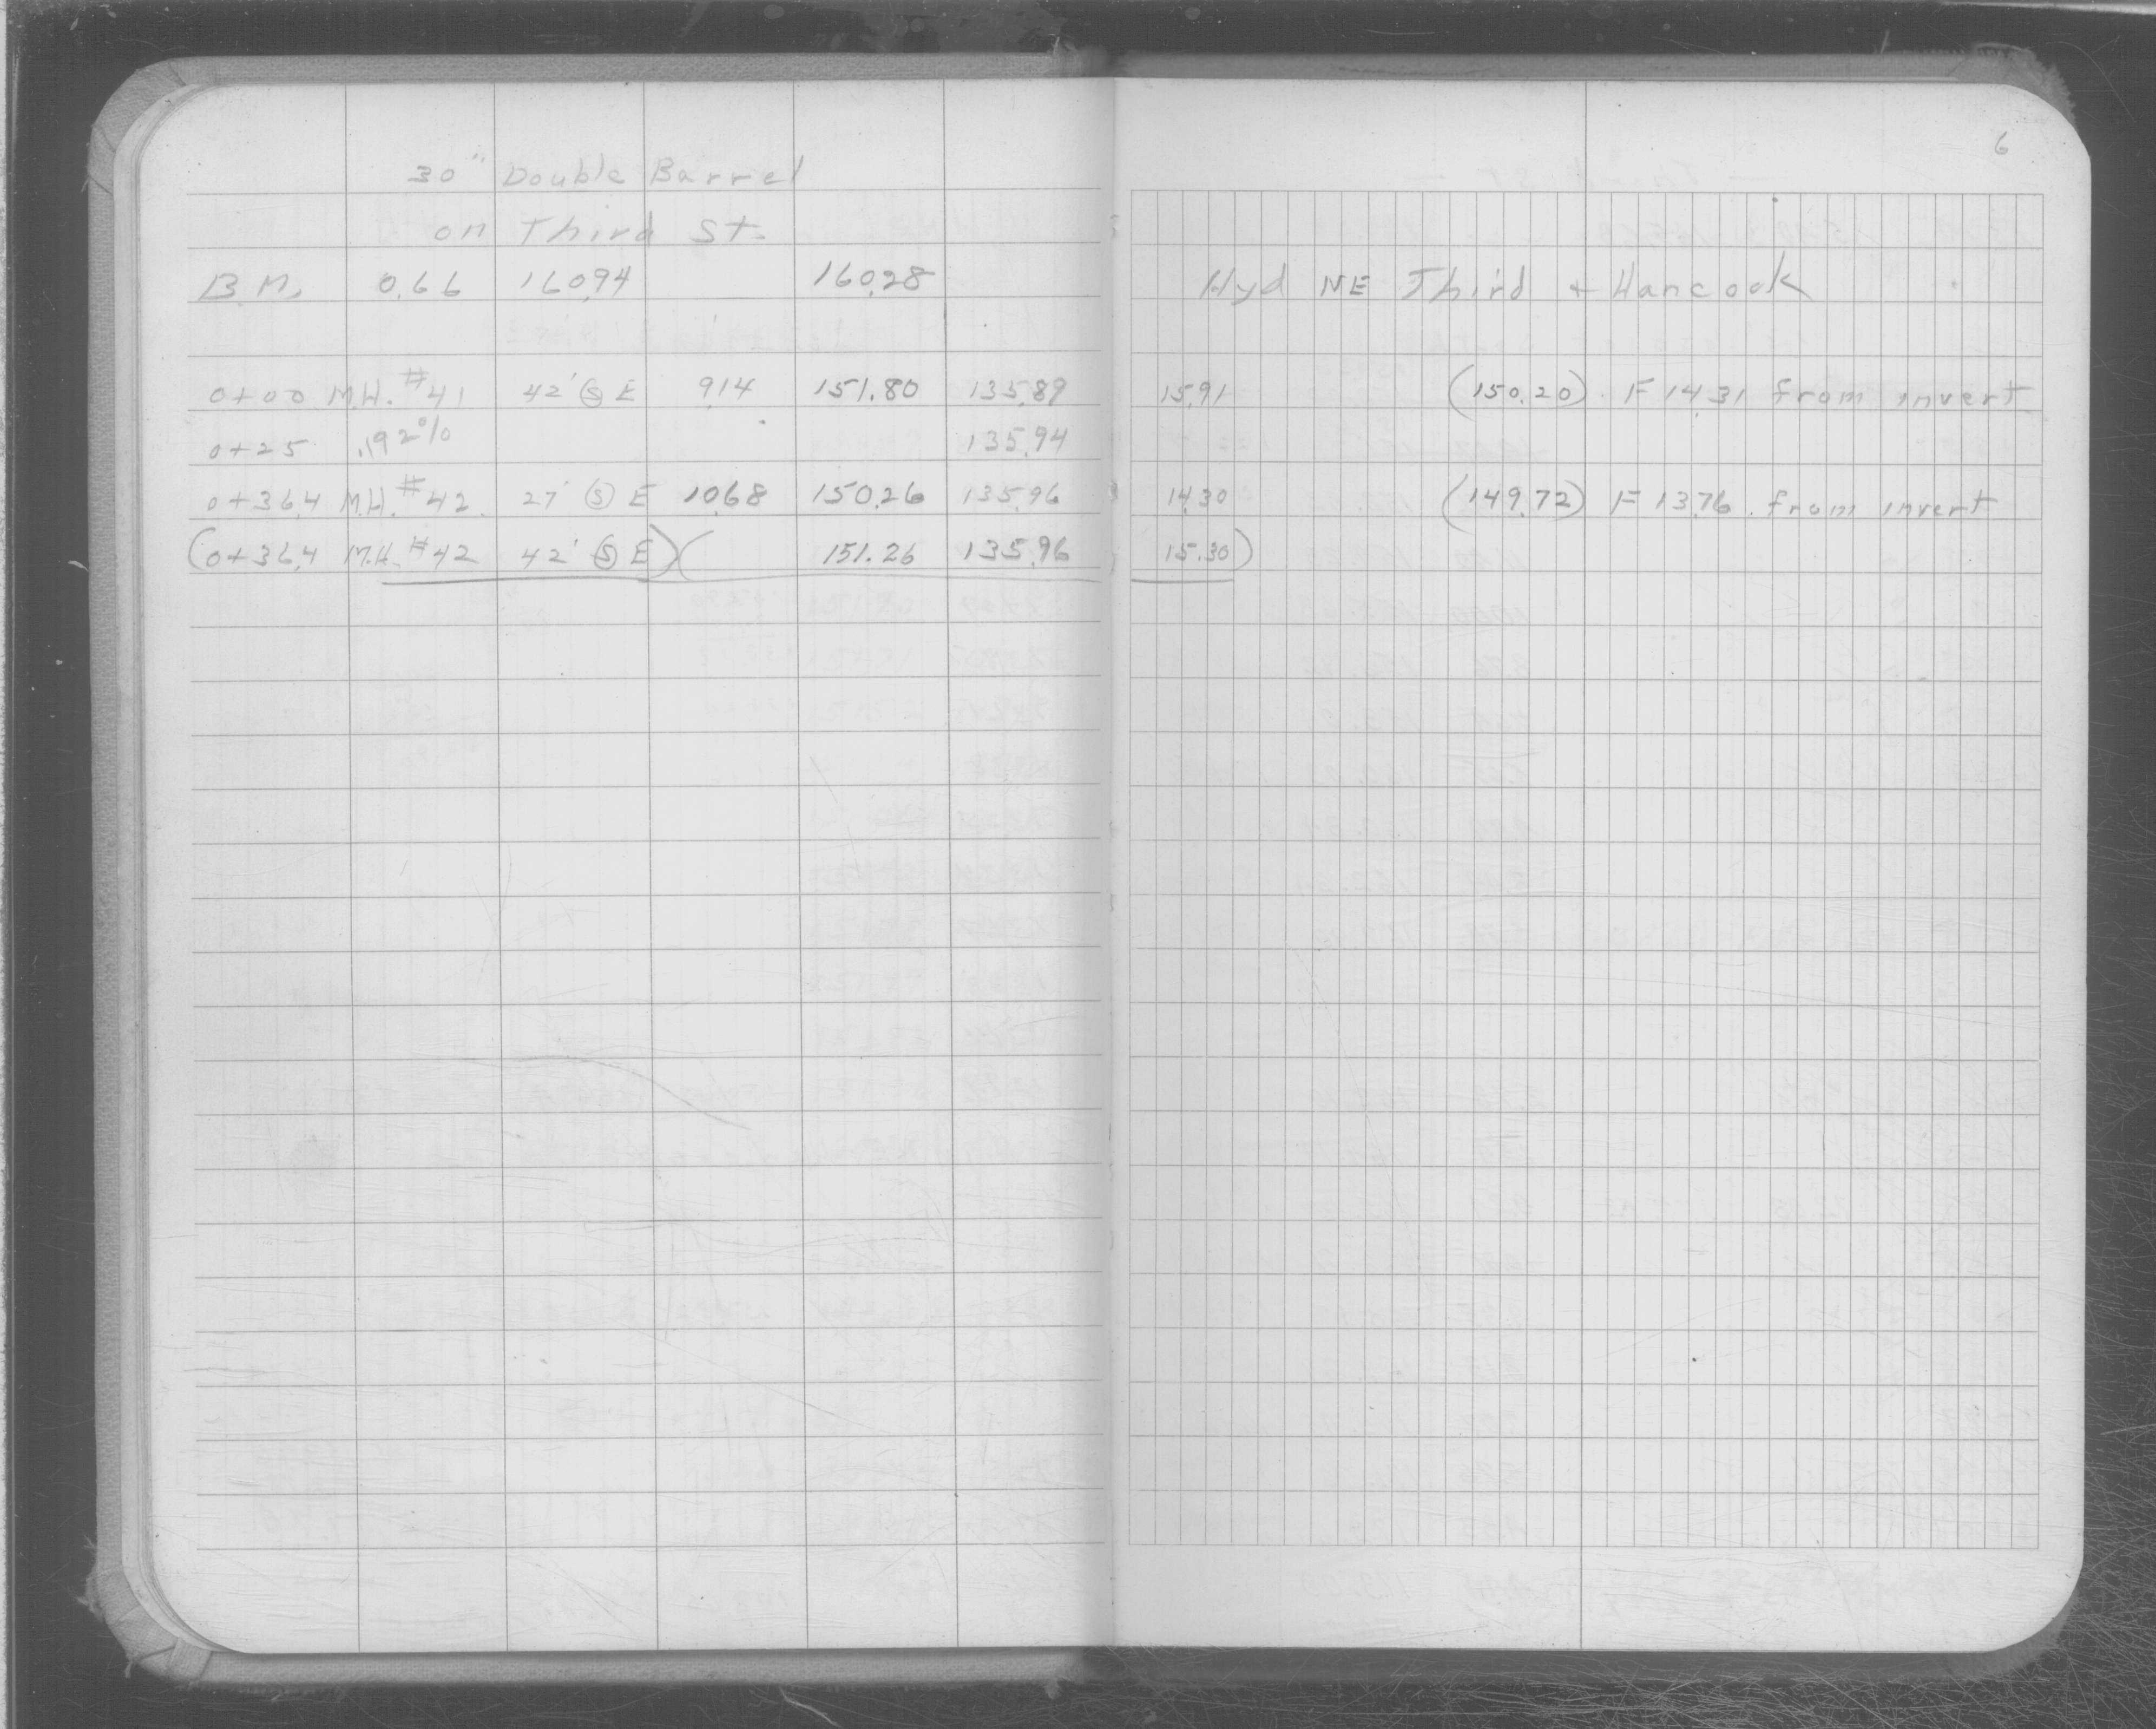 6
30" Double Barrel
on Third St.
B.M. 0.66 160.94 160.28 Hyd NE Third + Hancock
0+00 M.H. #41 42' Ⓢ E 9.14 151.80 135.89 15.91 (150.20) F 14.31 from invert
0+25 .192% 135.94
0+36.4 M.H. #42. 27' Ⓢ E 10.68 150.26 135.96 14.30 (149.72) F 13.76 from invert
(0+36.4 M.H. #42 42' Ⓢ E)( 151.26 135.96 15.30)